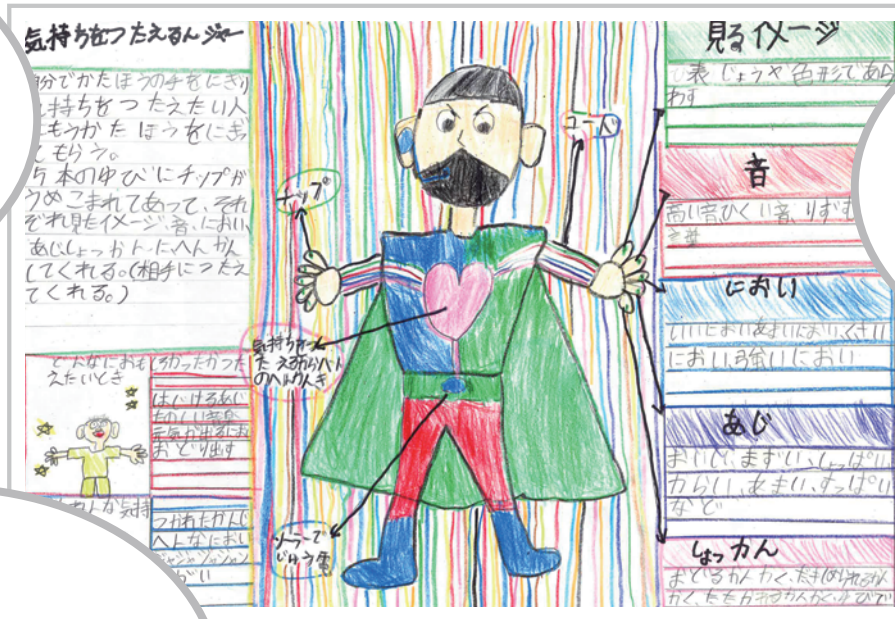 気持ちをつたえるんジャー
分でかたほうの手をにぎり
持ちをつたえたい人
もうかたほうをにぎっ
てもらう。
5本のゆびにチップが
うめこまれてあって、それ
ぞれ見たイメージ、音、におい、
あじ、しょっかんにへんかん
してくれる。(相手につたえ
てくれる。)
どんなにおもしろかったかつた
えたいとき
はじけるあじ
たのしい音楽
元気が出るにお
おどり出す
んな気持
つかれたかんじ
へんなにおい
チップ
気持ちをつ
たえるからハート
のへんかんき
ソーラーで
じゅう電
コード
見るイメージ
表じょうや色形であら
わす
音
高い音ひくい音、りずむ
におい
いいにおいあまいにおい、くさい
におい、強いにおい
あじ
おいしい、まずい、しょっぱい
からい、あまい、すっぱい
など
しょっかん
おどるかんかく、だきしめられるかん
かく、たたかれるかんかく、